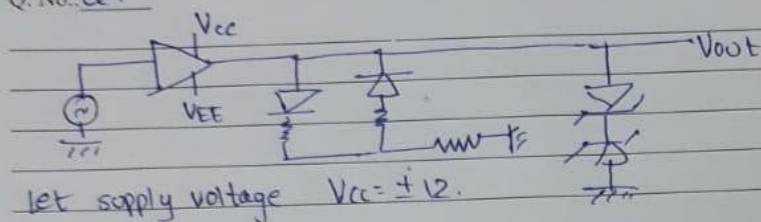 Q. No.:
Vcc
Vout
VEE
let supply voltage Vcc = ± 12.